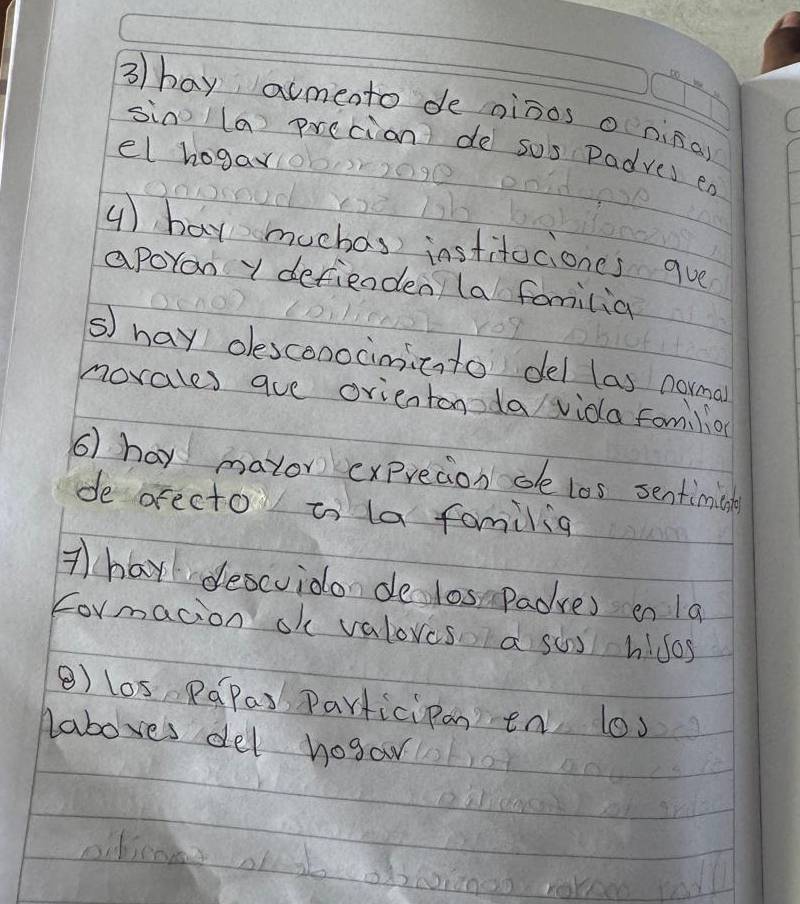 3) hay aumento de niños o niñas
sin la precian de sus Padres en
el hogar
4) hay muchas instituciones que
apoyan y defienden la familia
5) hay desconocimiento del las normas
morales que orientan la vida familiar
6) hay mayor exprecion de los sentimientos
de afecto en la familia
7) hay descuido de los Padres en la
formacion de valores a sus hijos
8) los Pápas Participan en los
labores del hogar